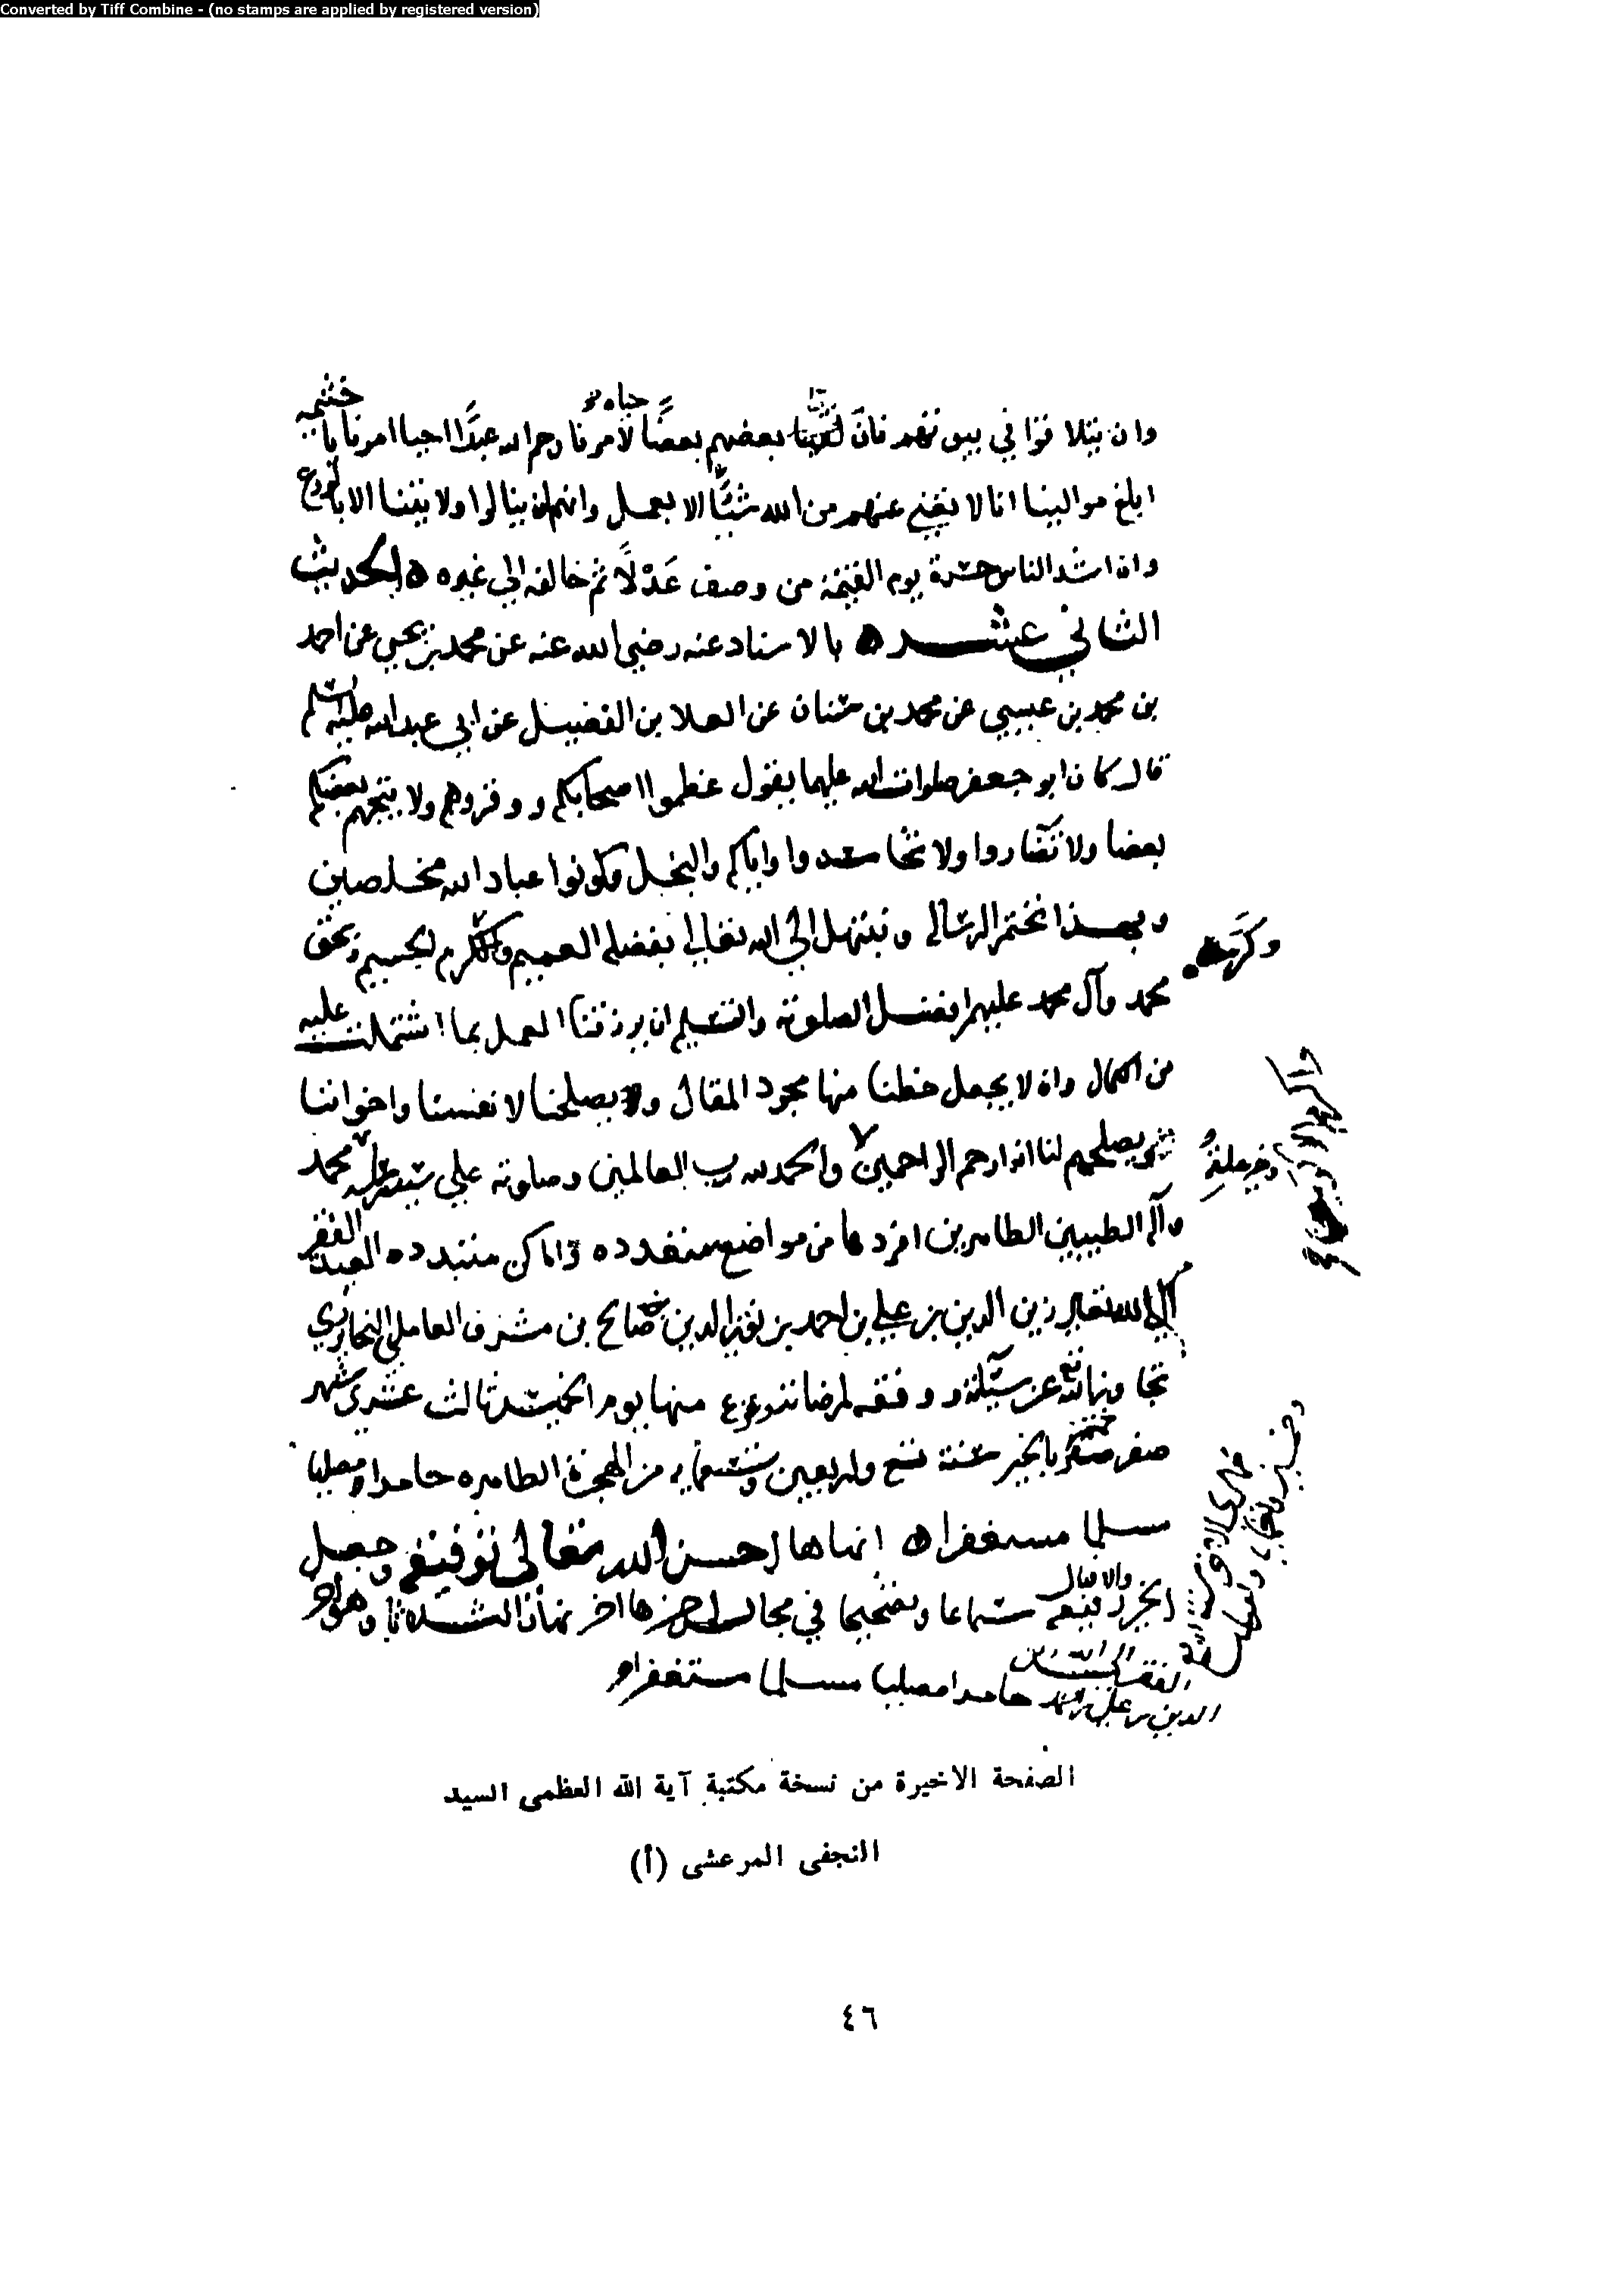 Converted by Tiff Combine - (no stamps are applied by registered version)
وان يتلاقوا في بيوتهم فان لقيا بعضهم بعضا حياه لامرنا رحم الله عبدا احيا امرنا يا خثيمه
ابلغ موالينا انا لا نغني عنهم من الله شيئا الا بعمل وانهم لن ينالوا ولايتنا الا بالورع
وان اشد الناس حسرة يوم القيمة من وصف عدلا ثم خالفه الى غيره ه الحديث
الثاني عشر ه بالاسناد عنه رضي الله عنه عن محمد بن يحيى عن احمد
بن محمد بن عيسى عن محمد بن سنان عن العلا بن الفضيل عن ابي عبد الله عليه السلم
قال كان ابو جعفر صلوات الله عليهما يقول عظموا اصحابكم ووقروهم ولا يتجهم بعضكم
بعضا ولا تضاروا ولا تحاسدوا واياكم والبخل وكونوا عباد الله مخلصين
وبهذا نختم الرسالة ونبتهل الى الله تعالى بفضله العميم وكرمه الجسيم وبحق
محمد وآل محمد عليهم افضل الصلوة والتسليم ان يرزقنا العمل بما اشتملت عليه
من الكمال وان لا يجعل حظنا منها مجرد المقال ويصلحنا لانفسنا واخواننا
ويصلحهم لنا انه ارحم الراحمين والحمد لله رب العالمين وصلوته على سيد رسله محمد
وآله الطيبين الطاهرين افردها من مواضع متعدده واماكن متبدده العبد الفقير
الى الله تعالى زين الدين بن علي بن احمد بن تقي الدين صالح بن مشرف العاملي
تجاوز الله عن سيئاته ووفقه لمرضاته وفرغ منها يوم الخميس ثالث عشرى شهر
صفر ختم بالخير سنة تسع واربعين وتسعمايه من الهجرة الطاهره حامدا مصليا
مسلما مستغفرا ه انهاها احسن الله تعالى توفيقه وجعل
الخير رفيقه سماعا وتصحيحا في مجالس اخرها نهار الثلاثا
الدين بن علي بن احمد حامدا مصليا مسلما مستغفرا
الصفحة الاخيرة من نسخة مكتبة آية الله العظمى السيد
النجفى المرعشى (أ)
٤٦